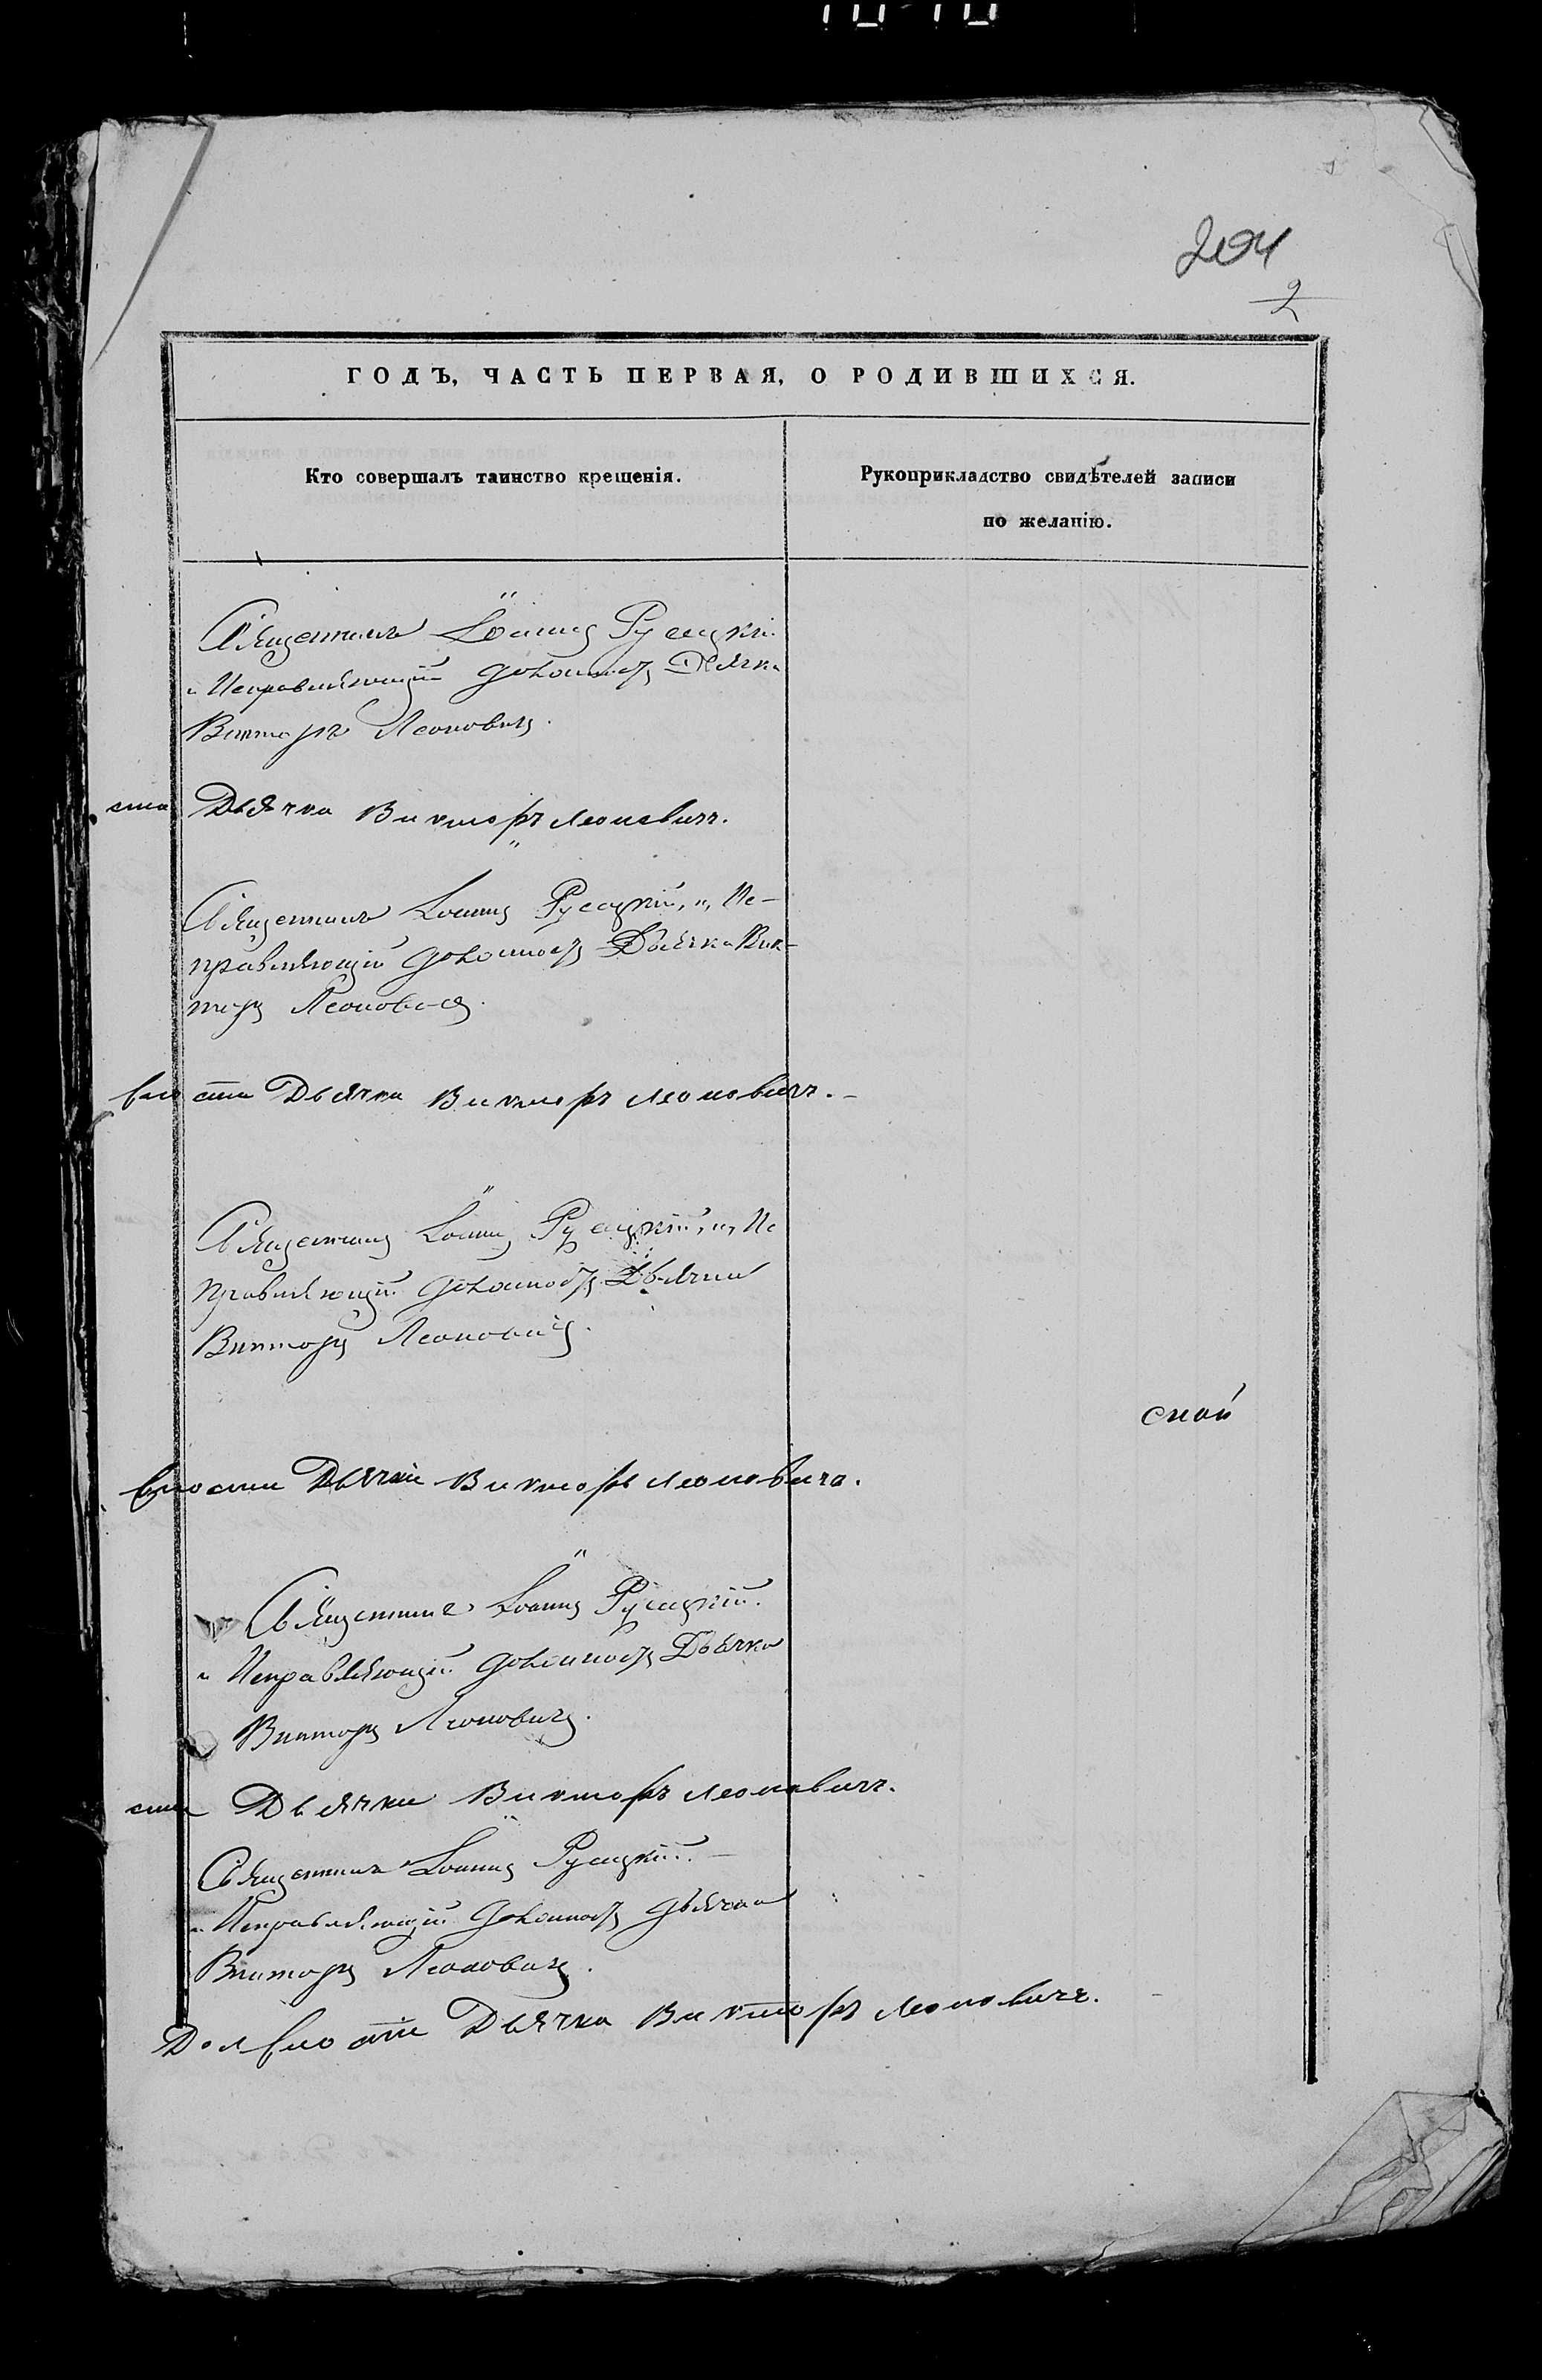 204
2
ГОДЪ, ЧАСТЬ ПЕРВАЯ, О РОДИВШИХСЯ.
Кто совершалъ таинство крещенія.
Рукоприкладство свидѣтелей записи
по желанію.
Священникъ Іоаннъ Русецкій
и Исправляющій должность Дьячка
Викторъ Леоновичъ.
сти Дьячка Викторъ Леоновичъ.
Священникъ Іоаннъ Русецкій, и, Ис-
правляющій должность Дьячка Вик-
торъ Леоновичъ.
жности Дьячка Викторъ Леоновичъ. –
Священникъ Іоаннъ Русецкій, и, Ис
правляющій должность Дьячка
Викторъ Леоновичъ.
ской
жности Дьячка Викторъ Леоновичъ.
Священникъ Іоаннъ Русецкій.
и Исправляющій должность Дьячка
Викторъ Леоновичъ.
сти Дьячка Викторъ Леоновичъ.
Священникъ Іоаннъ Русецкій. –
и Исправляющій должность дьячка
Викторъ Леоновичъ.
Должности Дьячка Викторъ Леоновичъ.